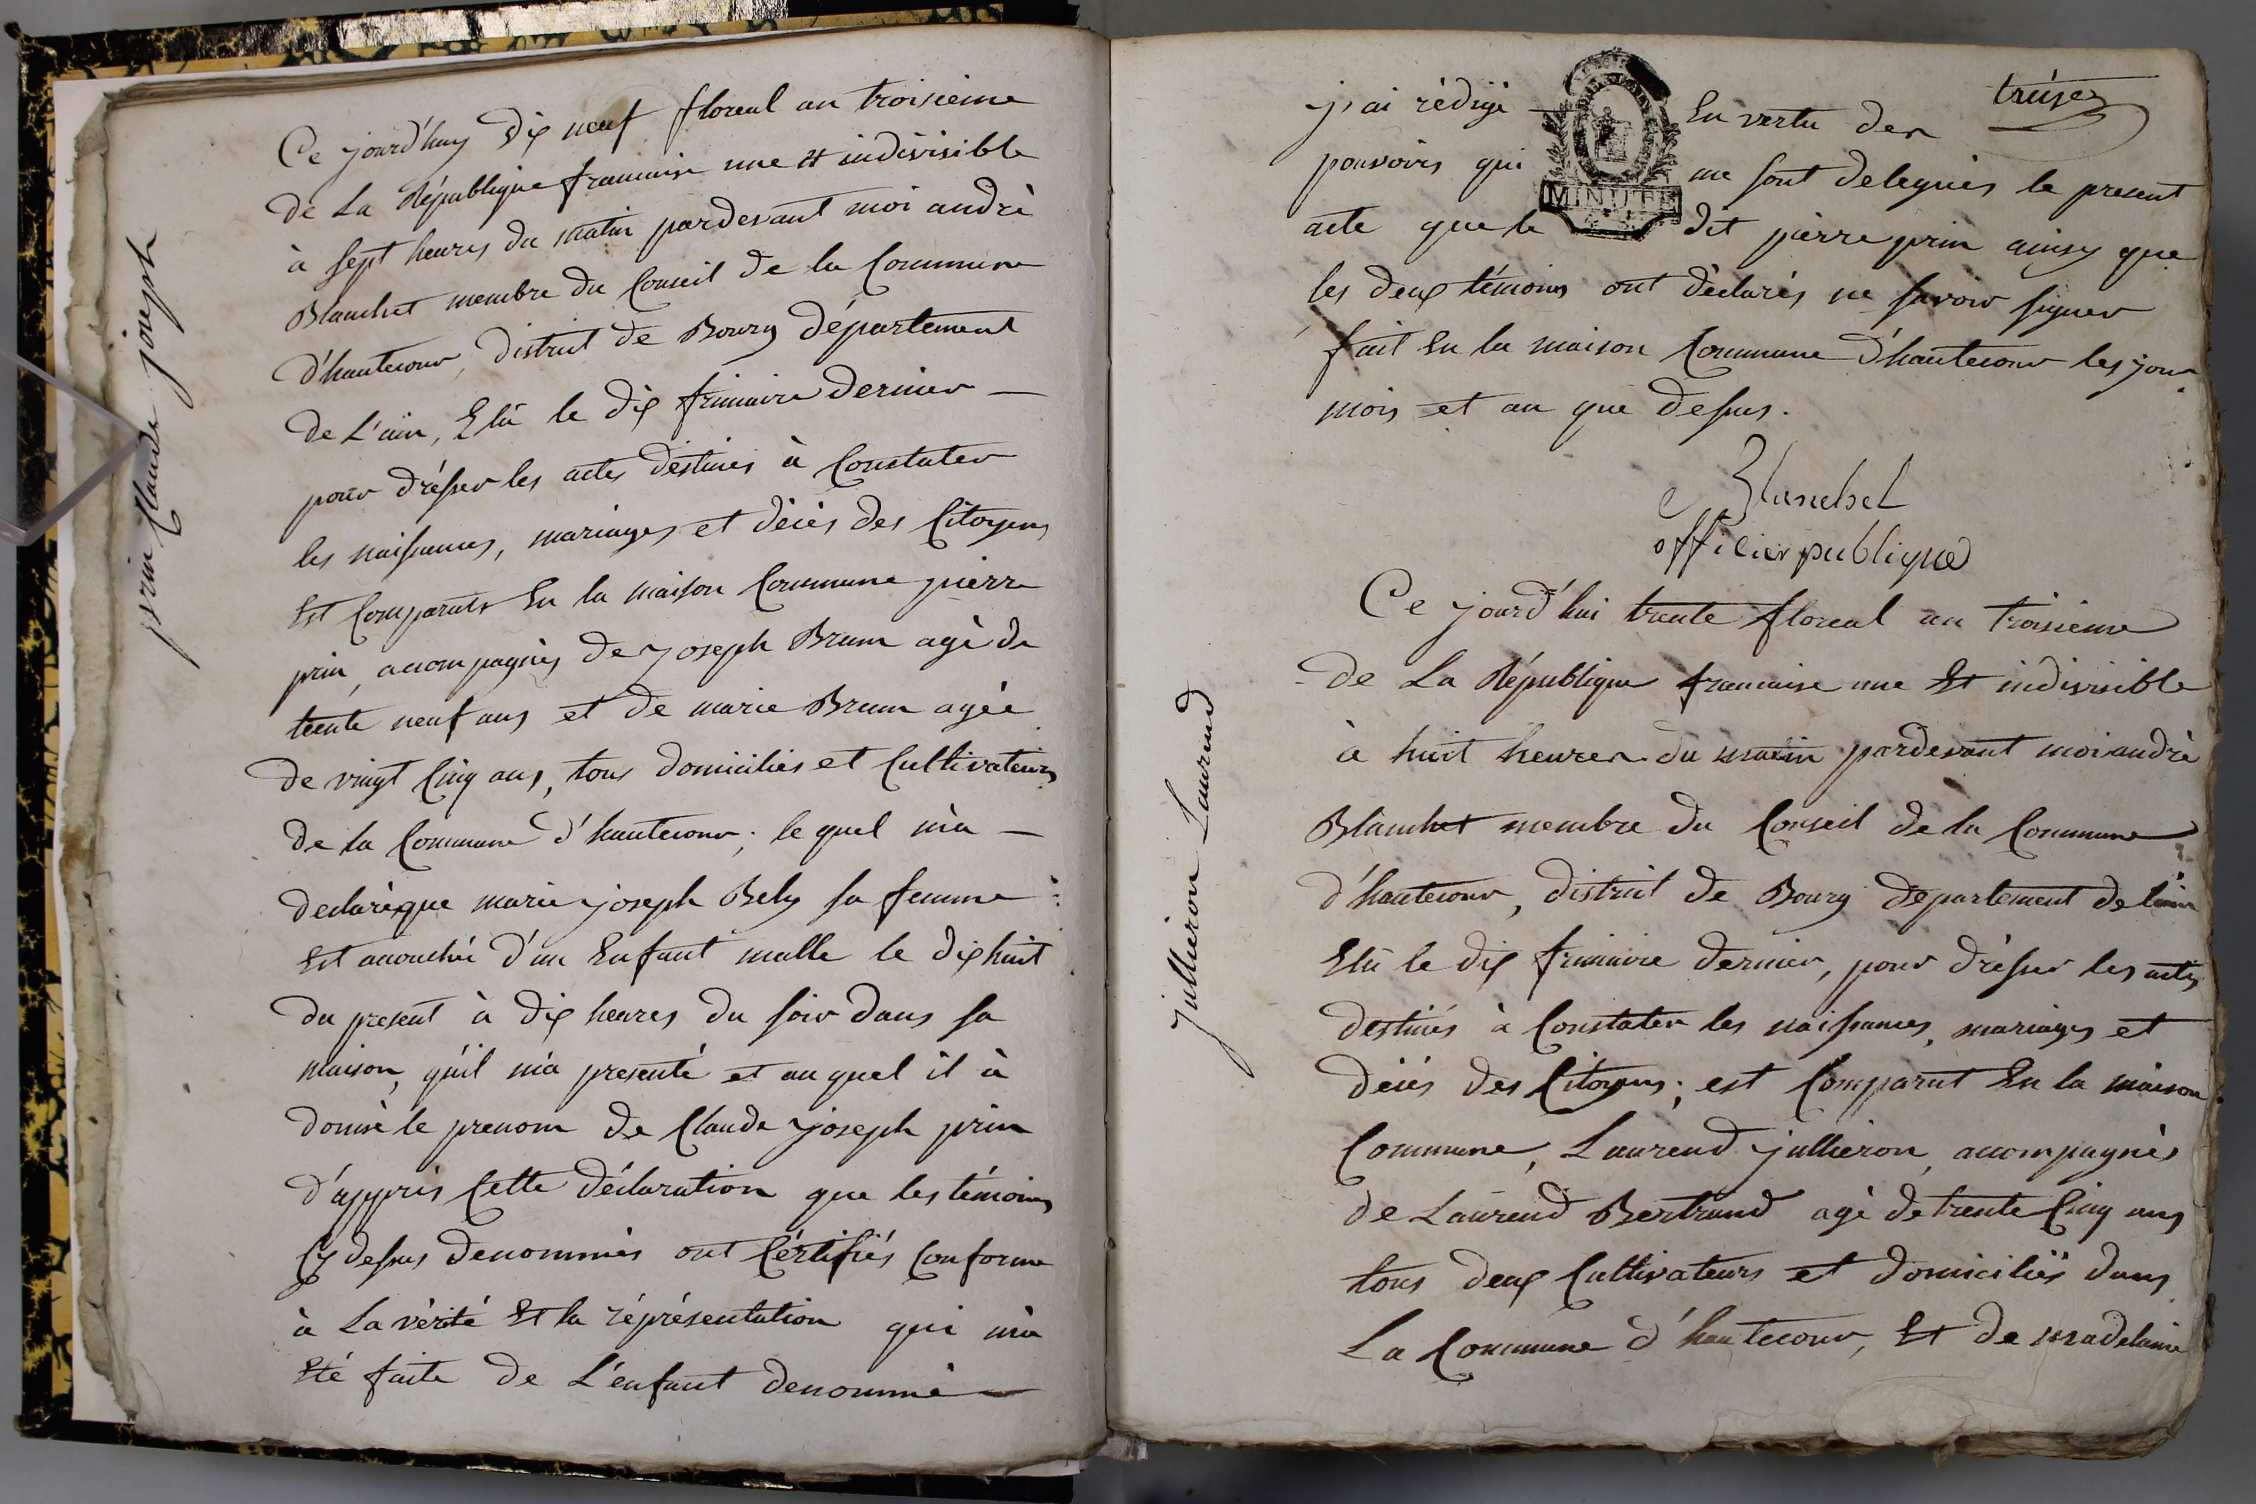 prin Claude joseph
Ce jourd'huy dix neuf floreal an troisieme
de La République francaise une et indivisible
à sept heures du matin pardevant moi andrè
Blanchet membre du Conseil de la Commune
d'hautecour, district de Bourg département
de L'ain, Elû le dix frimaire dernier —
pour drésser les actes destinés à Constater
les naissances, mariages et décès des Citoyens
Est Comparuts En la maison Commune pierre
prin, accompagnés de joseph Brun agè de
trente neuf ans et de marie Brun agèe
de vingt Cinq ans, tous domiciliés et Cultivateurs
de la Commune d'hautecour; le quel m'a —
declarè que marie joseph Bely sa femme
Est accouchée d'un Enfant malle le dix huit
du present à dix heures du soir dans sa
maison, qu'il m'a presenté et au quel il à
donnè le prenom de Claude joseph prin
d'apprés Cette déclaration que les témoins
Cy dessus denommés ont Cértifiés Conforme
à La vérité Et la réprésentation qui m'a
Eté faite de L'enfant denommé —
treize
j'ai rédigé — En vertu des
pouvoirs qui me sont delegués le present
MINUTE
acte que le dit pierre prin ainsy que
les deux témoins ont déclarés ne savoir signer
fait En la maison Commune d'hautecour les jour
mois et an que dessus.
Blanchet
officier publique
jullieron Laurend
Ce jourd'hui trente floreal an troisieme
de La République francaise une Et indivisible
à huit heures du matin pardevant moi andrè
Blanchet membre du Conseil de la Commune
d'hautecour, district de Bourg departement de L'ain
Elû le dix frimaire dernier, pour drésser les actes
destinés à Constater les naissances, mariages et
décés des Citoyens; est Comparut En la maison
Commune, Laurend jullieron, accompagnés
de Laurend Bertrand agè de trente Cinq ans
tous deux Cultivateurs et domiciliés dans
La Commune d'hautecour, Et de madelaine